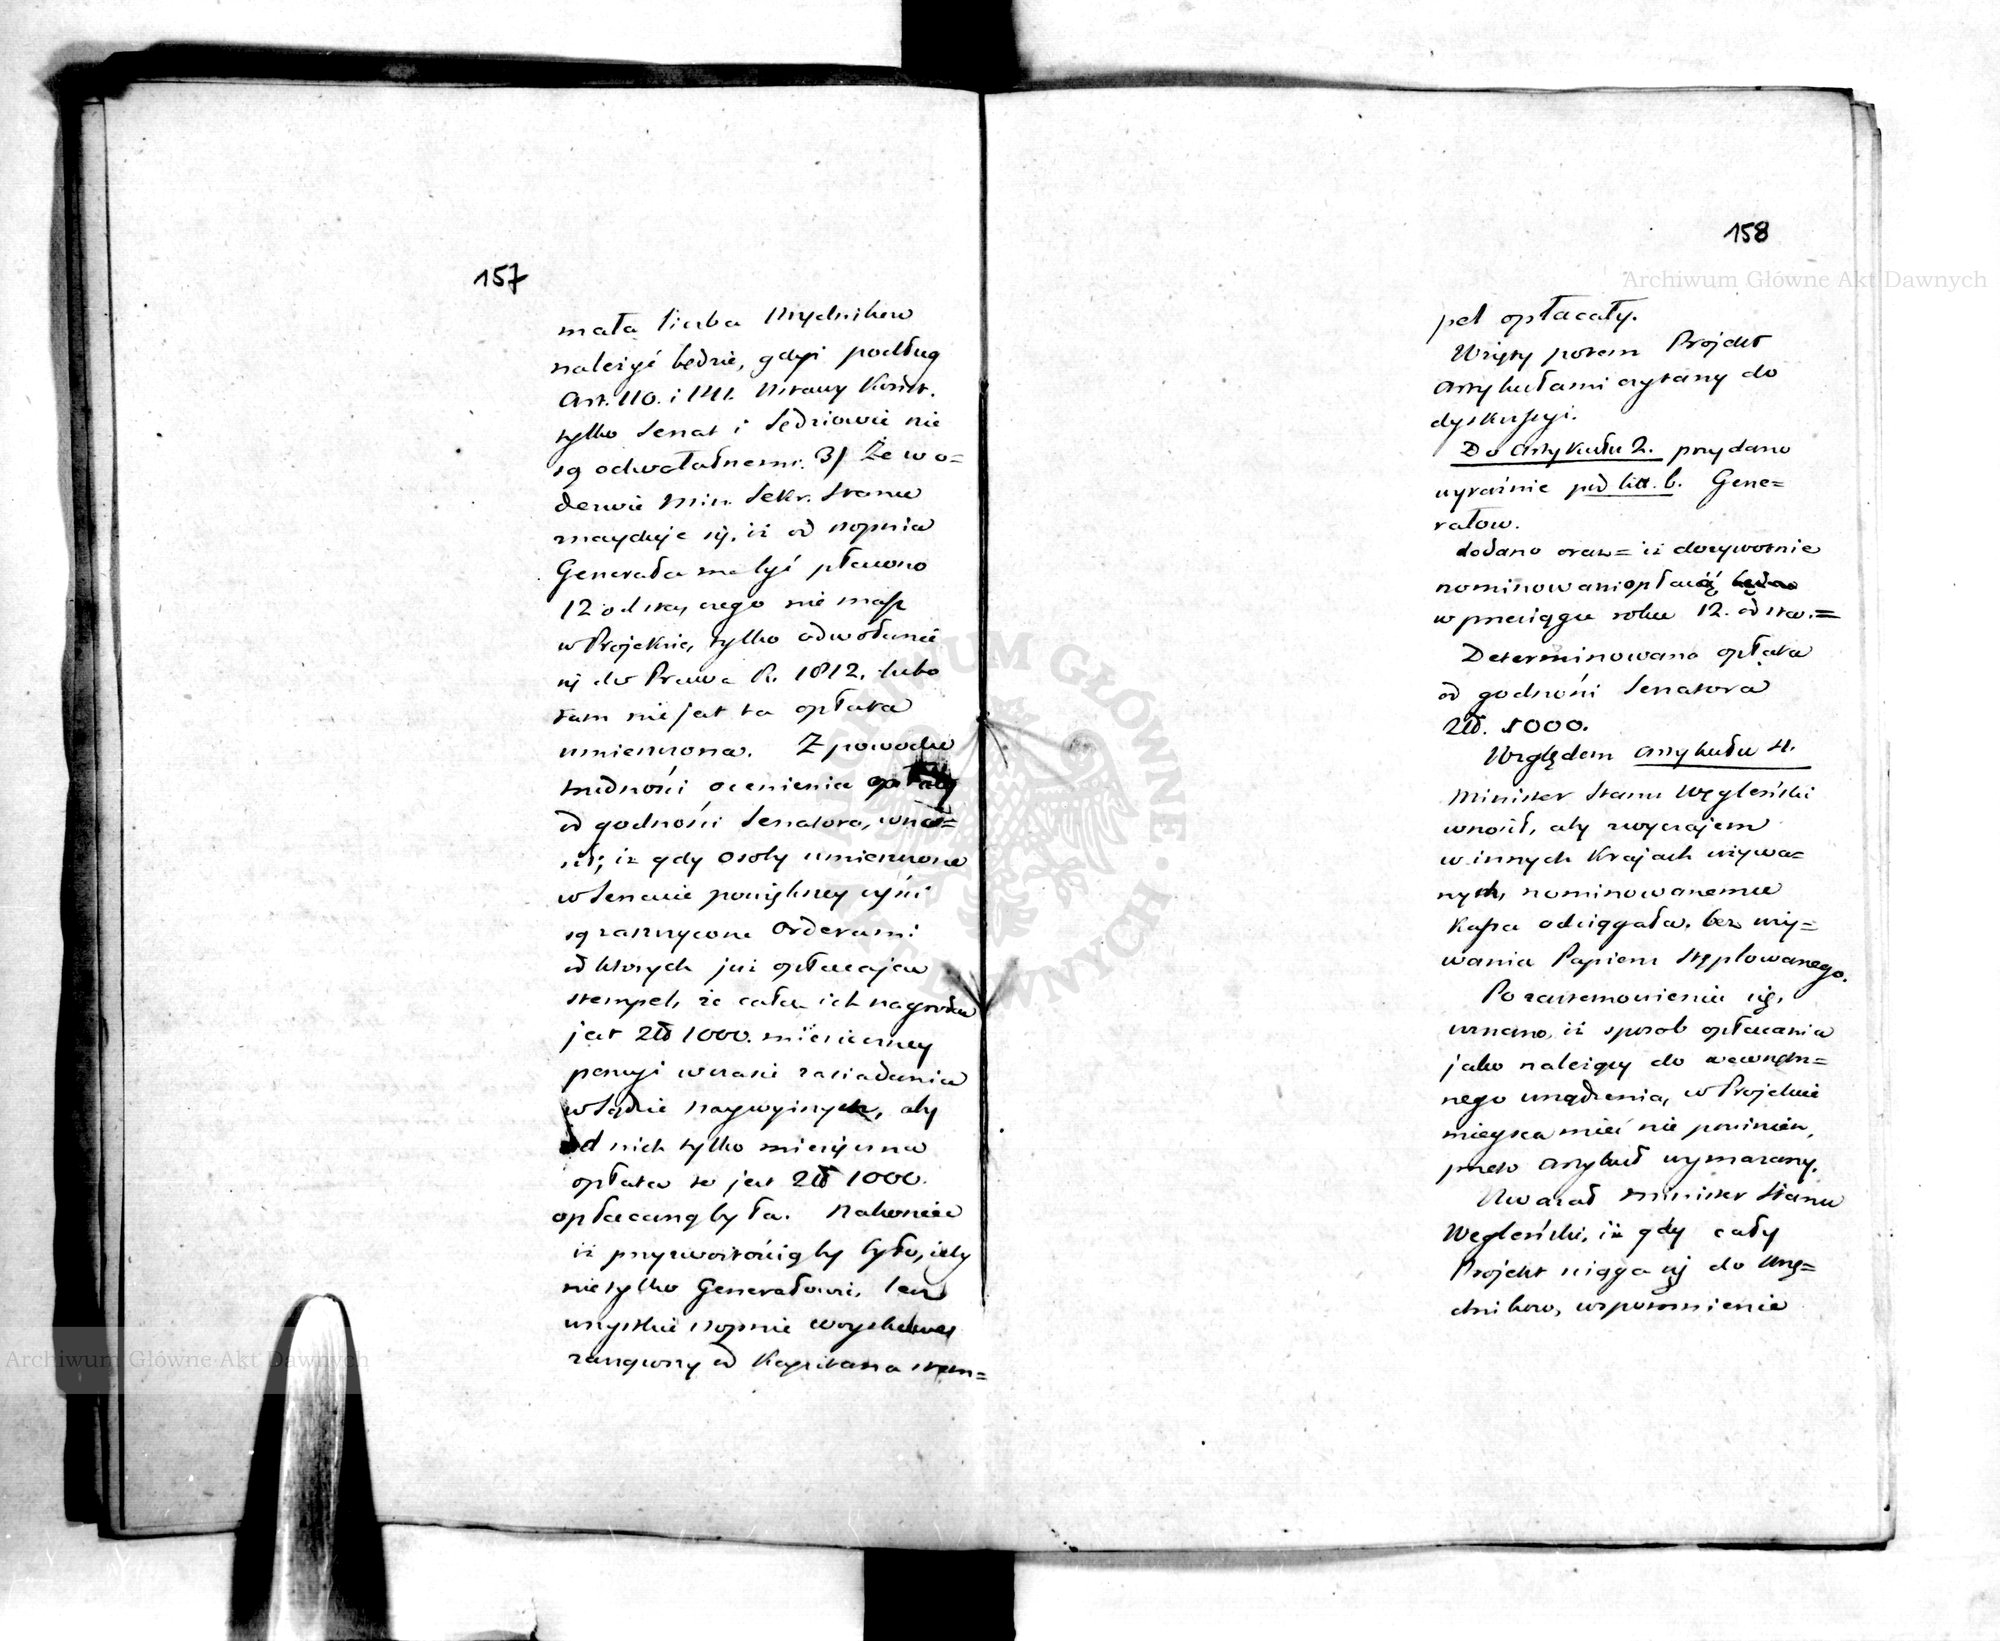 157
mała liczba Urzędników
należyć będzie, gdyż podług
Art. 110. i 141. Ustawy Konst.
tylko Senat i Sędziowie nie
są odwołalnemi. 3) Że w o=
derwie Min. Sekr. Stanu
znayduje się, iż od stopnia
Generała ma być płacono
12 od sta, czego nie masz
w Projekcie, tylko odwołanie
się do Prawa R. 1812. lubo
tam nie jest ta opłata
umieszczona. Z powodu
trudności ocenienia opłaty
od godności Senatora, wno=
sił; iż gdy osoby umieszczone
w Senacie powiększey części
są zaszczycone Orderami
od których już opłacają
stempel, że cała ich nagroda
jest Złł 1000. miesięczney
pensyi w czasie zasiadania
w Sądzie naywyższych, aby
od nich tylko miesięczna
opłata to jest Złł 1000.
opłacaną była. Nakoniec
iż przyzwoitością by było, żeby
nie tylko Generałowie, lecz
wszystkie stopnie woyskowe
zacząwszy od Kapitana stem=
158
pel opłacały.
Wzięty potem Projekt
Artykułami czytany do
dyskussyi.
Do Artykułu 2. przydano
wyraźnie pod litt. b. Gene=
rałow.
dodano oraz= iż dożywotnie
nominowani opłacą
w przeciągu roku 12. od sta.=
Determinowano opłata
od godności Senatora
Złł. 1000.
Względem Artykułu 4.
Minister Stanu Węgleński
wnosił, aby zwyczajem
w innych Krajach używa=
nych, nominowanemu
Kassa odciągała, bez uży=
wania Papieru Stęplowanego.
Po zastanowieniu się,
uznano, iż sposob opłacania
jako należący do wewnętrz=
nego urządzenia, w Projekcie
mieysca mieć nie powinien,
przeto Artykuł wymazany.
Uważał Minister Stanu
Węgleński, iż gdy cały
Projekt ściąga się do Urzę=
dników, wspomnienie
Archiwum Główne Akt Dawnych
Archiwum Główne Akt Dawnych
ARCHIWUM GŁÓWNE AKT DAWNYCH